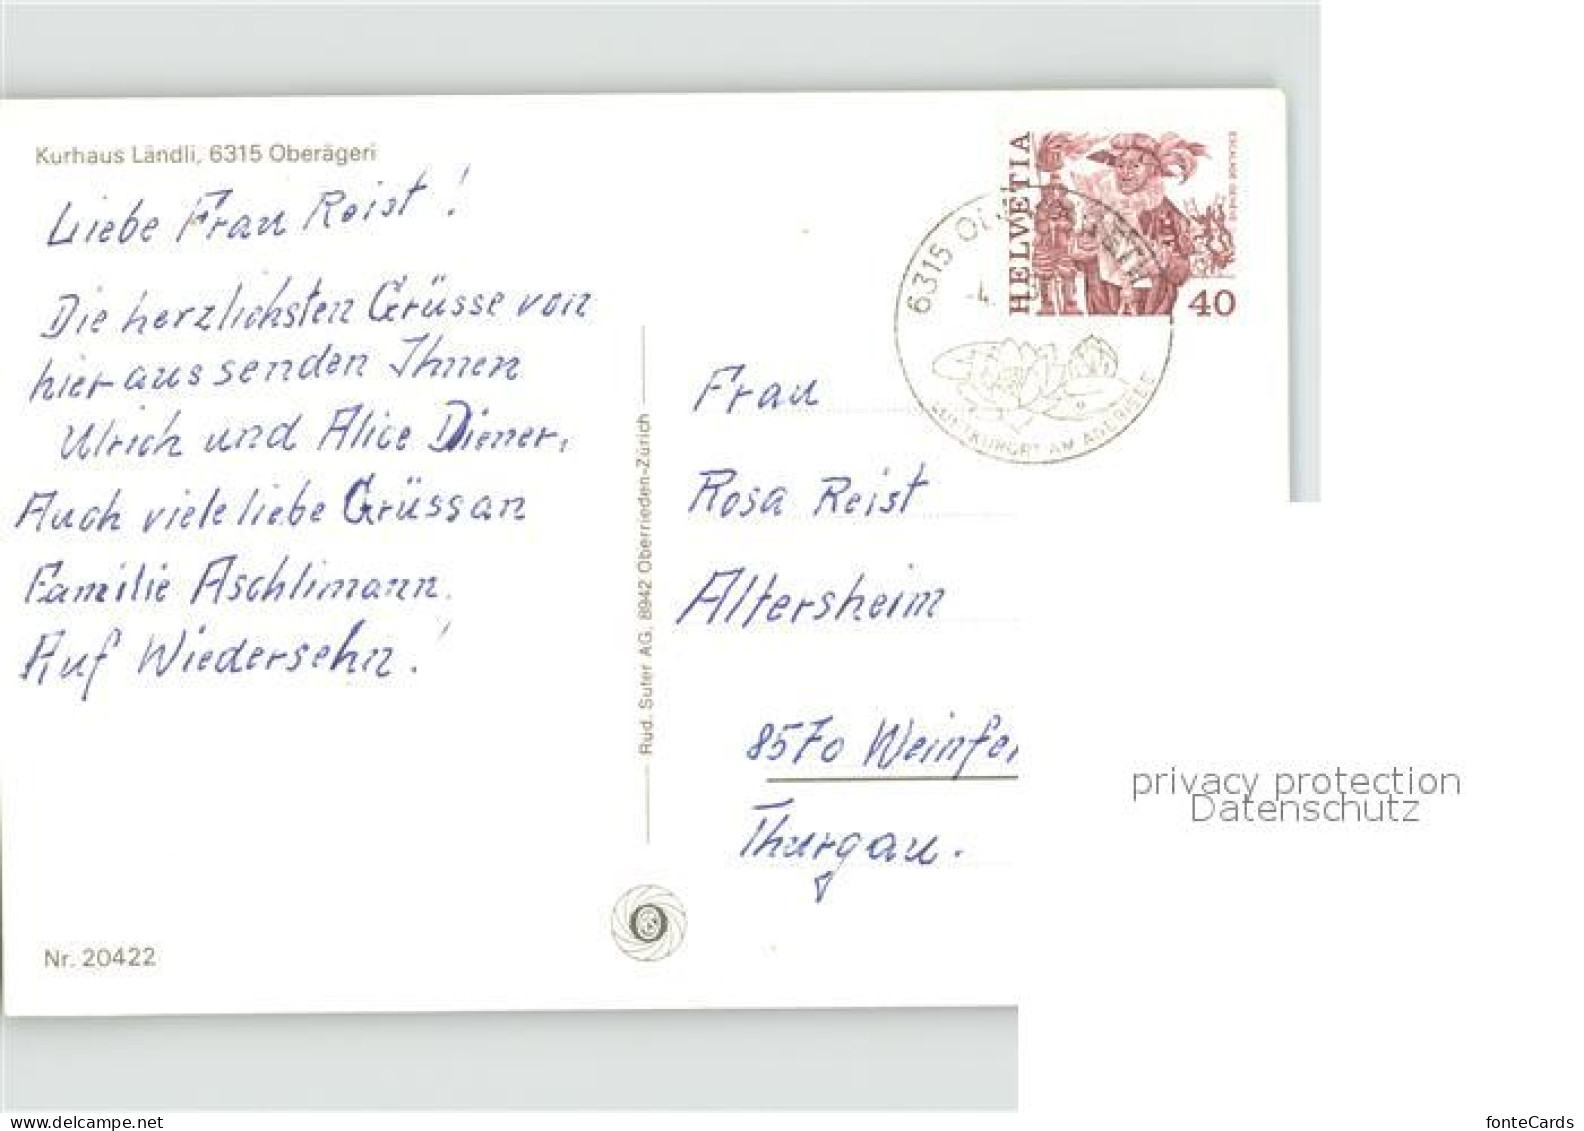 Kurhaus Ländli, 6315 Oberägeri
Liebe Frau Reist!
Die herzlichsten Grüsse von
hier aus senden Ihnen
Ulrich und Alice Diener,
Auch viele liebe Grüss an
Familie Aschlimann.
Auf Wiedersehn!
Nr. 20422
Rud. Suter AG, 8942 Oberrieden-Zürich
HELVETIA
ESCALADE GENÈVE
40
6315
-4.
LUFTKURORT AM ÄGERISEE
Frau
Rosa Reist
Altersheim
8570 Weinfel
Thurgau.
privacy protection
Datenschutz
www.delcampe.net
fonteCards